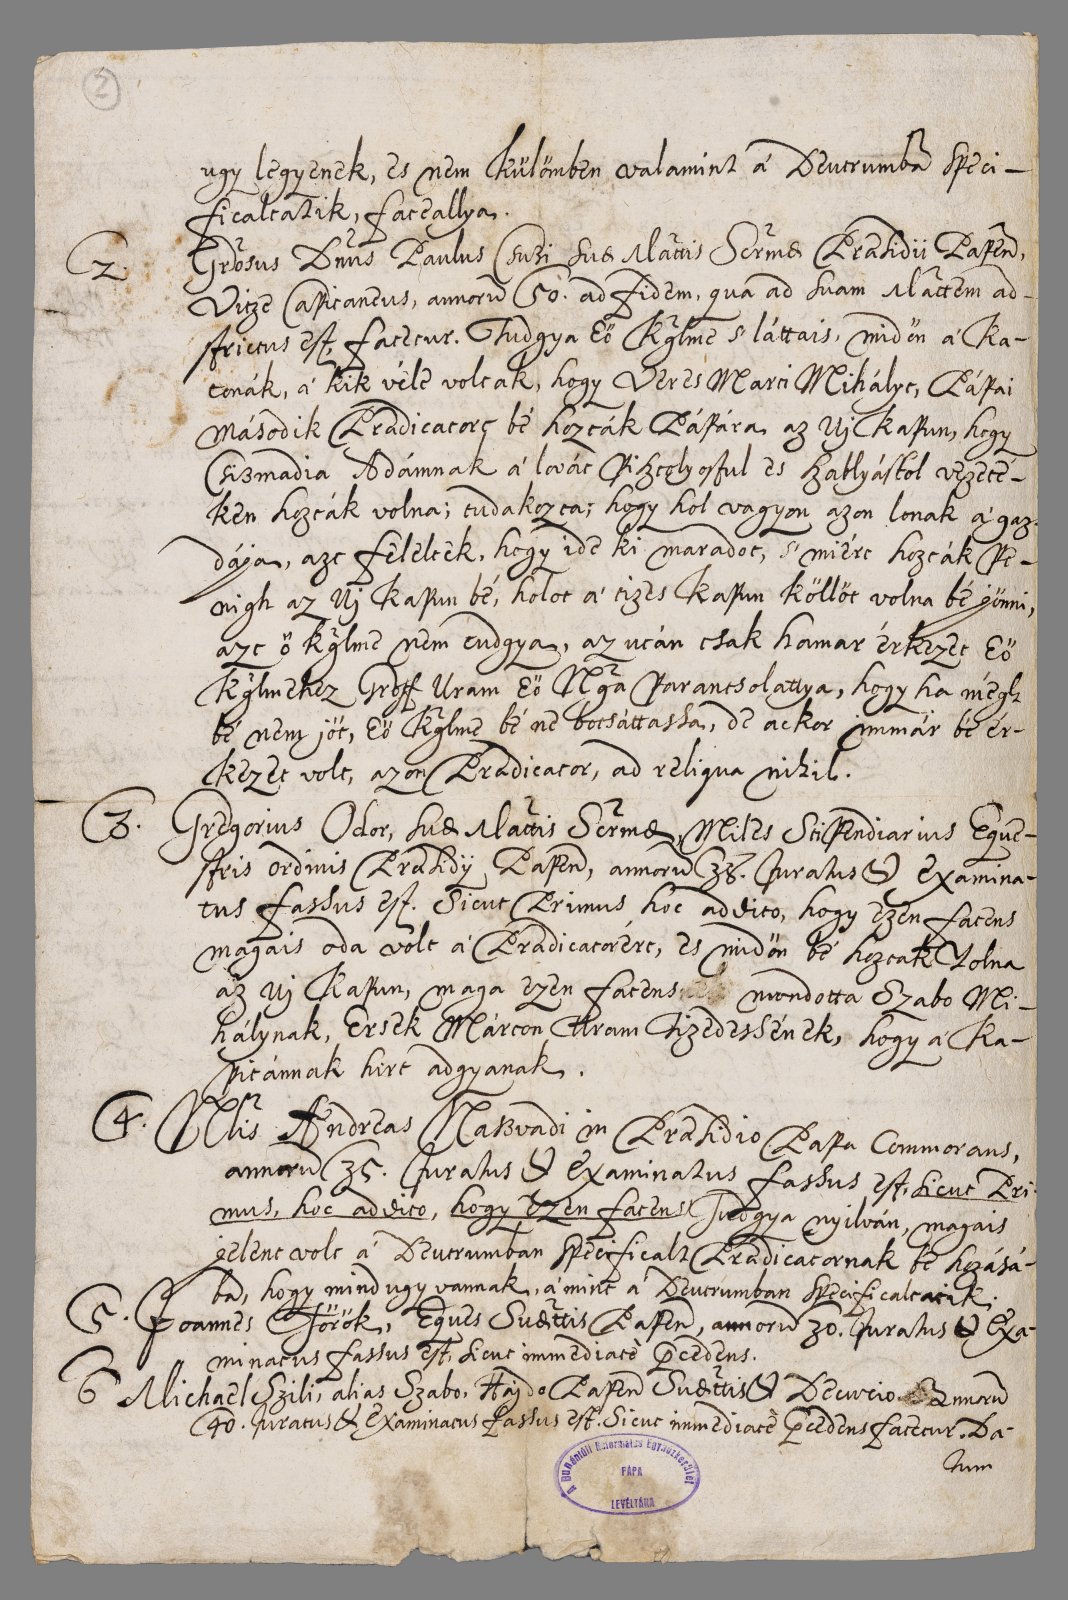 2
ugy legyenek, es nem külömben valamint á Deutrumba speci-
ficaltatik, faceallya.
2. Grosus Dnus Paulus Csuzi suae Mattis Sermae Praesidii Papen,
Vice Capitaneus, annoru 50. ad fidem, qua ad suam Mattem ad-
strictus est, fatetur. Tudgya Eö Kglme s' láttais, midön á Ka-
tonák, á kik véle voltak, hogy Veres Marci Mihályt, Pápai
második Praedicatort bé hozták Pápára az Uj Kapun, hogy
Csizmadia Adámnak á lovát Pisztolyostul es szablyástol vezeté-
ken hozták volna; tudakozta; hogy hol vagyon azon lonak á gaz-
dája, azt felelték, hogy ide ki maradot, s' miért hozták Pe-
nigh az Uj Kapun bé, holot á tizes Kapun köllöt volna bé jönni,
azt ö kglme nem tudgya, az után csak hamar érkezet Eö
Kglmehez Groff Uram Eö Nga Parantsolattya, hogy ha mégh
bé nem jöt, Eö Kglme bé ne botsáttassa, de akkor immár bé ér-
kezet volt, azon Praedicator, ad reliqua nihil.
3. Gregorius Odor, suae Mattis Sermae, Miles Stipendiarius Eque-
stris ordinis Praesidij Papen, annoru 38. Juratus & examina-
tus fassus est. Sicut Primus hoc addito, hogy ezen fatens
magais oda volt á Praedicatorért, es midön bé hoztak volna
az Uj Kapun, maga ezen fatens mondotta Szabo Mi-
hálynak, Ersek Márton Uram Tizedessének, hogy á Ka-
pitánnak hirt adgyanak.
4. Nblis Andreas Naszvadi in Praesidio Papa Commorans,
annoru 35. Juratus & Examinatus fassus est, sicut Pri-
mus, hoc addito, hogy ezen fatens Tudgya nyilván, magais
jelent volt á Deutrumban specificalt Praedicatornak bé hozásá-
ba, hogy mind ugy vannak, á mint á Deutrumban specificaltatik.
5. Joannes Török, Eques Suae Mttis Papen, annoru 30. Juratus & Exa-
minatus fassus est, sicut immediatè Praecedens.
6 Michael Szili, alias Szabo, Hajdo Papen Suae Mttis & Decurio Annoru
40. Juratus & Examinatus fassus est. Sicut immediatè Praecedens fatetur. Da-
tum
A Dunántúli Református Egyházkerület
PÁPA
LEVÉLTÁRA